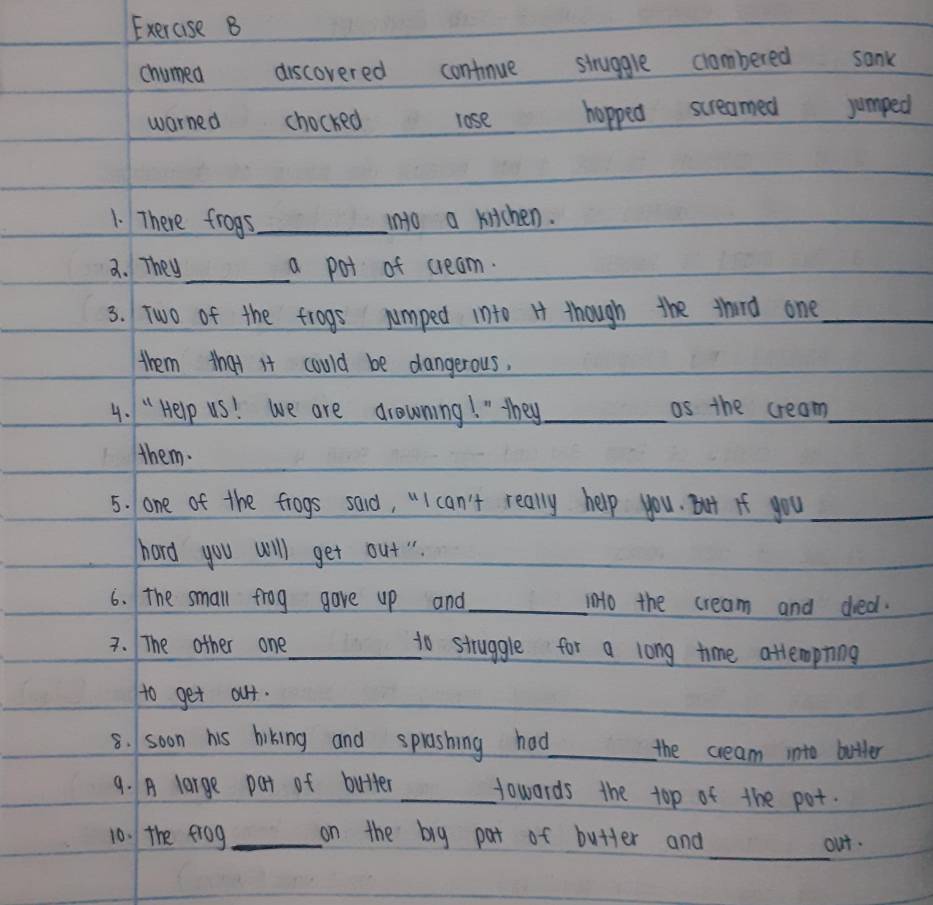 Exercise B
chumed discovered continue struggle clambered sank
warned chocked rose hopped screamed jumped
1. There frogs________ into a kitchen.
2. They________ a pot of cream.
3. Two of the frogs jumped into it though the third one________
them that it could be dangerous.
4. "Help us! We are drowning!" they________ as the cream________
them.
5. one of the frogs said, "I can't really help you. But if you________
hard you will get out".
6. The small frog gave up and________ into the cream and died.
7. The other one________ to struggle for a long time attempting
to get out.
8. soon his hiking and splashing had________ the cream into butter
9. A large pat of butter________ towards the top of the pot.
10. The frog________ on the big pat of butter and________ out.